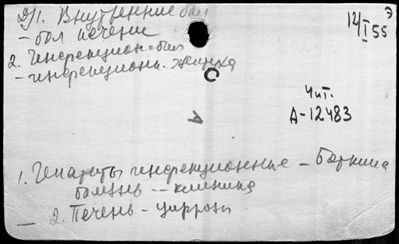 Д/1. Внутренние бол
– бол печени
2. Инфекцион. бол
– инфекцион. желтуха
14/I 55
Э
Чит.
А-12483
А
1. Гепатиты инфекционные – Боткина
болезнь -- клиника
2. Печень – циррозы